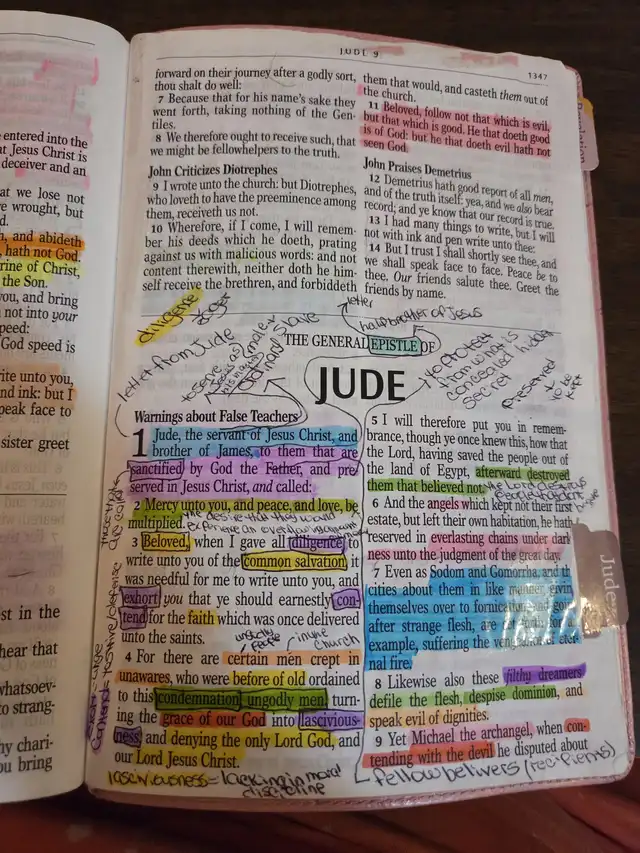 JUDE 9
1347
entered into the
at Jesus Christ is
deceiver and an
at we lose not
e wrought, but
d.
h, and abideth
hath not God.
rine of Christ,
the Son.
you, and bring
not into your
peed:
God speed is
rite unto you,
nd ink: but I
peak face to
sister greet
st in the
hear that
whatsoev-
to strang-
hy chari-
ou bring
forward on their journey after a godly sort,
thou shalt do well:
7 Because that for his name's sake they
went forth, taking nothing of the Gen-
tiles.
8 We therefore ought to receive such, that
we might be fellowhelpers to the truth.
John Criticizes Diotrephes
9 I wrote unto the church: but Diotrephes,
who loveth to have the preeminence among
them, receiveth us not.
10 Wherefore, if I come, I will remem-
ber his deeds which he doeth, prating
against us with malicious words: and not
content therewith, neither doth he him-
self receive the brethren, and forbiddeth
them that would, and casteth them out of
the church.
11 Beloved, follow not that which is evil,
but that which is good. He that doeth good
is of God: but he that doeth evil hath not
seen God.
John Praises Demetrius
12 Demetrius hath good report of all men,
and of the truth itself: yea, and we also bear
record; and ye know that our record is true.
13 I had many things to write, but I will
not with ink and pen write unto thee:
14 But I trust I shall shortly see thee, and
we shall speak face to face. Peace be to
thee. Our friends salute thee. Greet the
friends by name.
Revelation
diligence
eager
letter
half brother of Jesus
letter from Jude
to serve
Jesus as
male
ordinary slave
THE GENERAL EPISTLE OF
JUDE
to protect
from what is
concealed hidden
secret
preserved
to be
kept
Warnings about False Teachers
1 Jude, the servant of Jesus Christ, and
brother of James, to them that are
sanctified by God the Father, and pre-
served in Jesus Christ, and called:
2 Mercy unto you, and peace, and love, be
multiplied.
the desire that they would
experience an
3 Beloved, when I gave all diligence to
write unto you of the common salvation, it
was needful for me to write unto you, and
exhort you that ye should earnestly con-
tend for the faith which was once delivered
unto the saints.
ungodly
people
in the
church
4 For there are certain men crept in
unawares, who were before of old ordained
to this condemnation, ungodly men, turn-
ing the grace of our God into lascivious-
ness, and denying the only Lord God, and
our Lord Jesus Christ.
lasciviousness = lacking in moral
discipline
are called
exhort = urge
contend =
5 I will therefore put you in remem-
brance, though ye once knew this, how that
the Lord, having saved the people out of
the land of Egypt, afterward destroyed
them that believed not.
the Lord destroys
people that dont
6 And the angels which kept not their first
estate, but left their own habitation, he hath
reserved in everlasting chains under dark-
ness unto the judgment of the great day.
7 Even as Sodom and Gomorrha, and th
cities about them in like manner, givin
themselves over to fornication, and goi
after strange flesh, are set forth for
example, suffering the vengeance of eter-
nal fire.
Jude
8 Likewise also these filthy dreamers
defile the flesh, despise dominion, and
speak evil of dignities.
9 Yet Michael the archangel, when con-
tending with the devil he disputed about
fellow belivers (recipients)